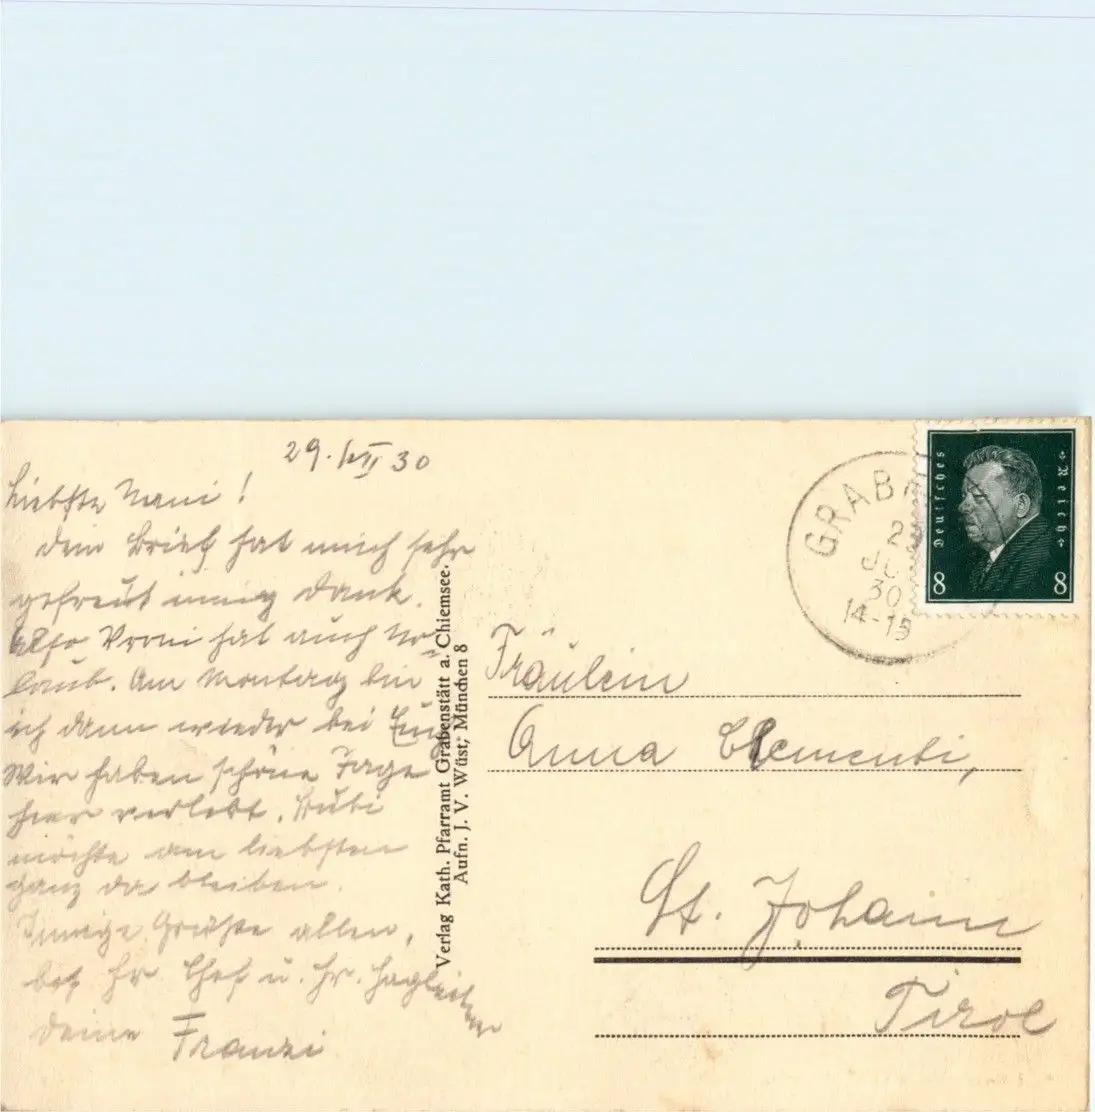 29. VII 30
Liebste Nani!
Dein Brief hat mich sehr
gefreut innig Dank.
Also Vroni hat auch Ur-
laub. Am Montag bin
ich dann wieder bei Euch
Wir haben schöne Tage
hier verlebt. Bubi
möchte am liebsten
ganz da bleiben.
Innige Grüße allen,
bes. Hr. Chef u. Hr. Hagleitner
Deine Franzi
Verlag Kath. Pfarramt Grabenstätt a. Chiemsee.
Aufn. J. V. Wüst, München 8
GRAB
2
30
14-15
Deutsches Reich
8 8
Fräulein
Anna Clementi,
St. Johann
Tirol